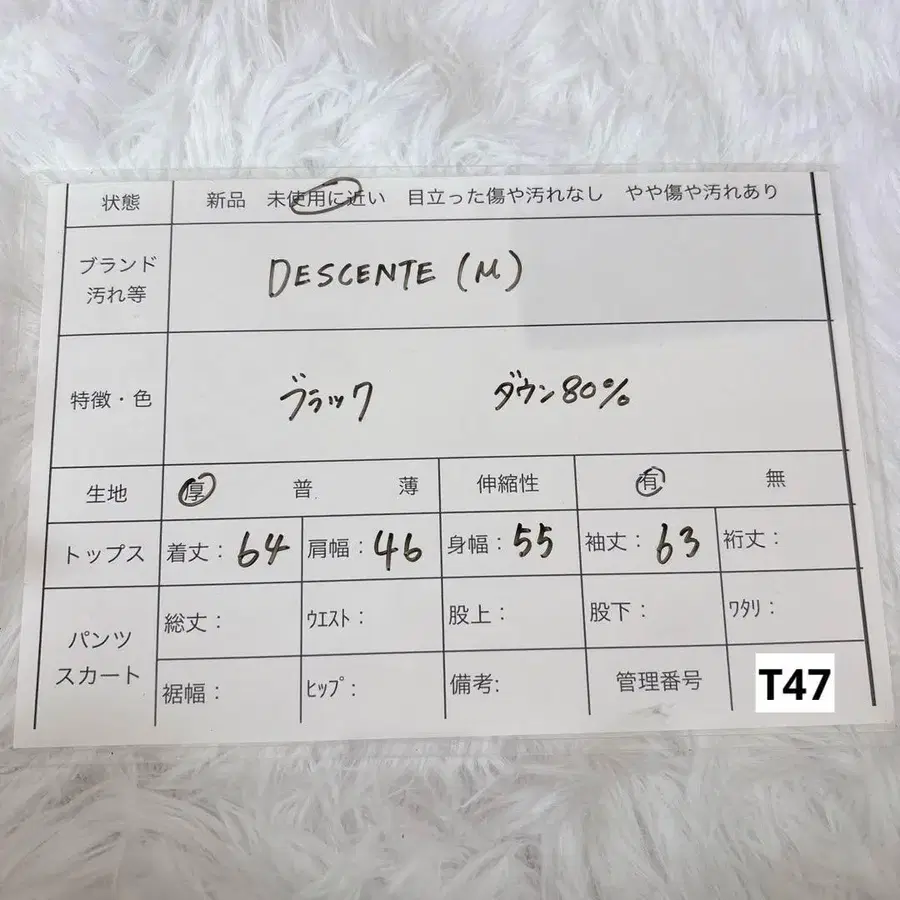 状態 新品 未使用に近い 目立った傷や汚れなし やや傷や汚れあり
ブランド
汚れ等
DESCENTE (M)
特徴・色 ブラック ダウン80%
生地 厚 普 薄 伸縮性 有 無
トップス 着丈: 64 肩幅: 46 身幅: 55 袖丈: 63 裄丈:
パンツ
スカート
総丈: ウエスト: 股上: 股下: ワタリ:
裾幅: ヒップ: 備考: 管理番号 T47